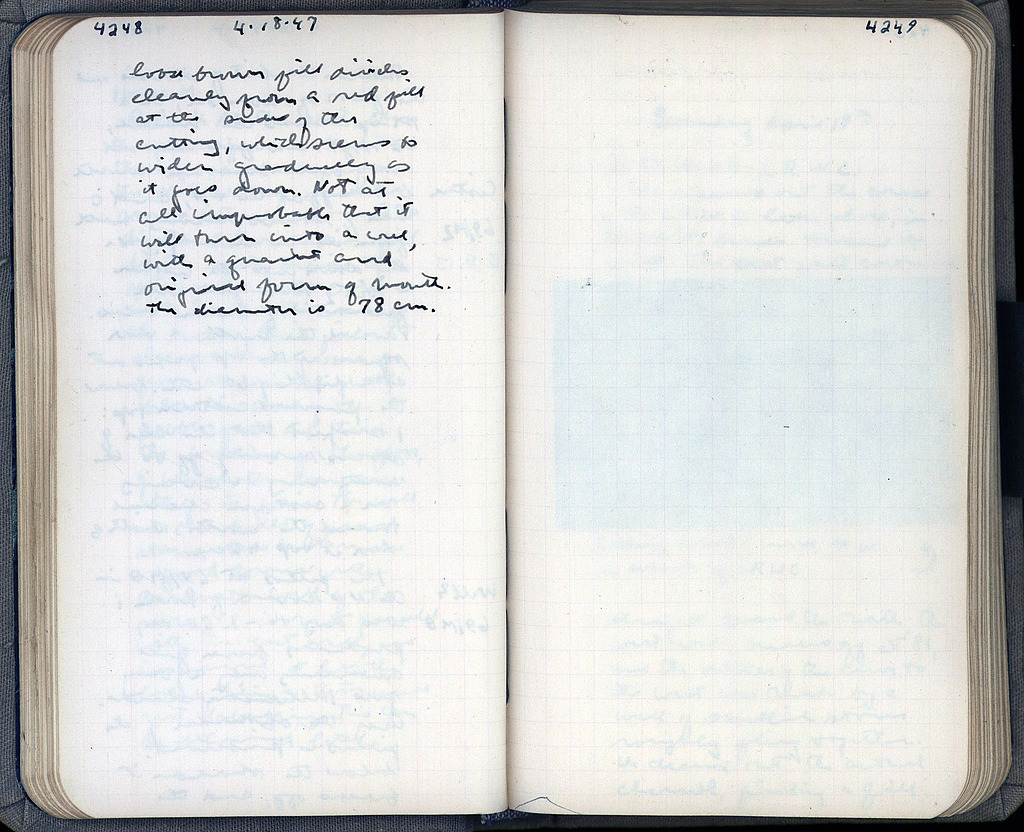 4248 4.18.47
loose brown fill divides
cleanly from a red fill
at the sides of the
cutting, which seems to
widen gradually as
it goes down. Not at
all improbable that it
will turn into a well,
with a quaint and
original form of mouth.
The diameter is 78 cm.
4249